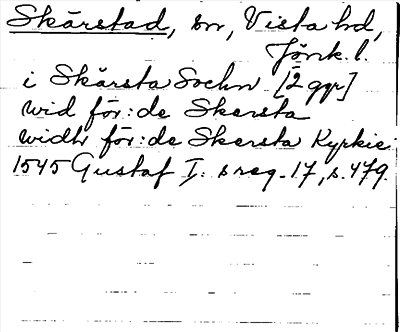 Skärstad, sn, Vista hd,
Jönk. l.
i Skärsta Sochn [2 ggr]
wid för:de Skersta
widh för:de Skersta Kyrkie
1545 Gustaf I:s reg. 17, s. 479.